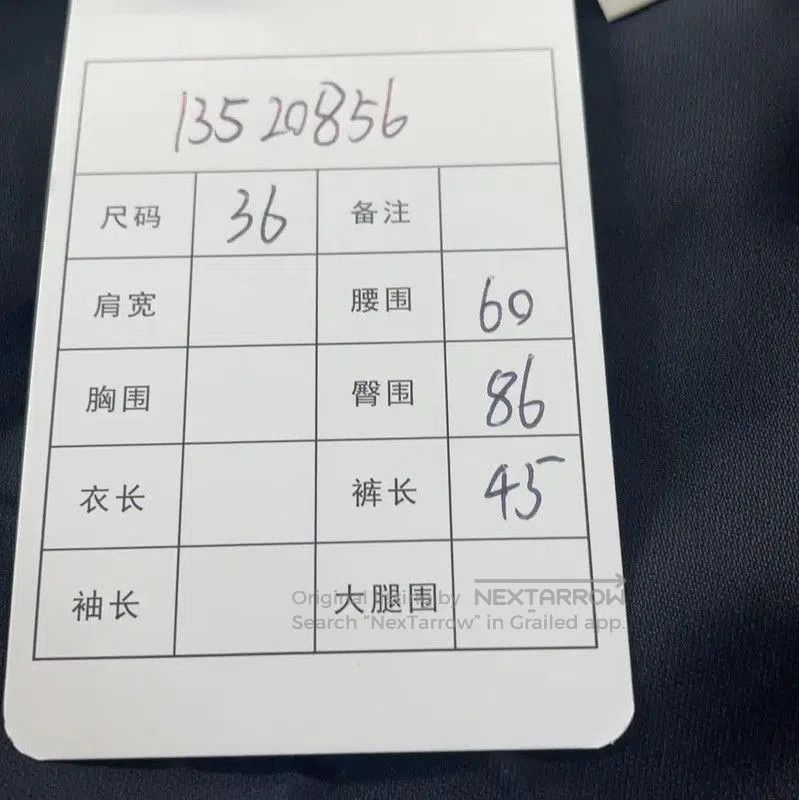 13520856
尺码 36 备注
肩宽 腰围 60
胸围 臀围 86
衣长 裤长 45
袖长 大腿围
Original listing by NEXTARROW
Search "NexTarrow" in Grailed app.